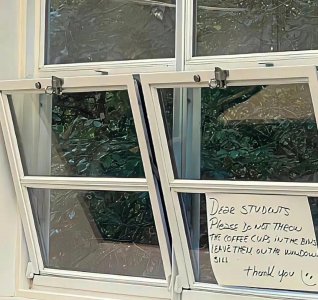 DEAR STUDENTS
PLEASE DO NOT THROW
THE COFFEE CUPS IN THE BINS
LEAVE THEM ON THE WINDOW
SILL
thank you :)